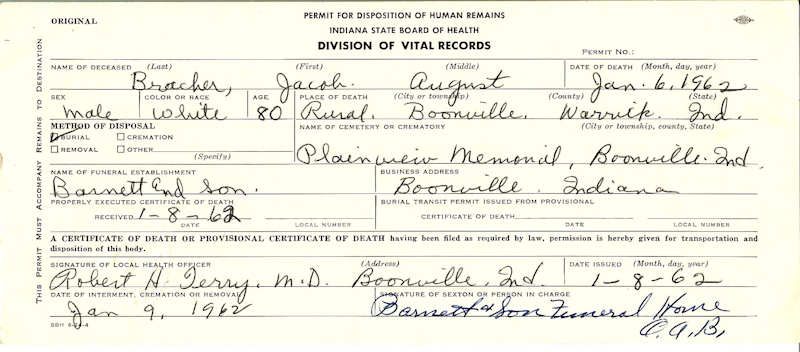 ORIGINAL
PERMIT FOR DISPOSITION OF HUMAN REMAINS
INDIANA STATE BOARD OF HEALTH
DIVISION OF VITAL RECORDS
PERMIT NO.:
THIS PERMIT MUST ACCOMPANY REMAINS TO DESTINATION
NAME OF DECEASED (Last) (First) (Middle) DATE OF DEATH (Month, day, year)
Bracher, Jacob. August Jan. 6, 1962
SEX COLOR OR RACE AGE PLACE OF DEATH (City or township) (County) (State)
male White 80 Rural. Boonville. Warrick. Ind.
METHOD OF DISPOSAL NAME OF CEMETERY OR CREMATORY (City or township, county, State)
BURIAL CREMATION
REMOVAL OTHER
(Specify)
Plainview Memorial, Boonville. Ind
NAME OF FUNERAL ESTABLISHMENT BUSINESS ADDRESS
Barnett and Son. Boonville. Indiana
PROPERLY EXECUTED CERTIFICATE OF DEATH BURIAL TRANSIT PERMIT ISSUED FROM PROVISIONAL
RECEIVED 1-8-62 CERTIFICATE OF DEATH
DATE LOCAL NUMBER DATE LOCAL NUMBER
A CERTIFICATE OF DEATH OR PROVISIONAL CERTIFICATE OF DEATH having been filed as required by law, permission is hereby given for transportation and
disposition of this body.
SIGNATURE OF LOCAL HEALTH OFFICER (Address) DATE ISSUED (Month, day, year)
Robert H. Terry, M.D. Boonville, Ind. 1-8-62
DATE OF INTERMENT, CREMATION OR REMOVAL SIGNATURE OF SEXTON OR PERSON IN CHARGE
Jan 9, 1962 Barnett & Son Funeral Home
C.A.B.
SBH 6-24-4